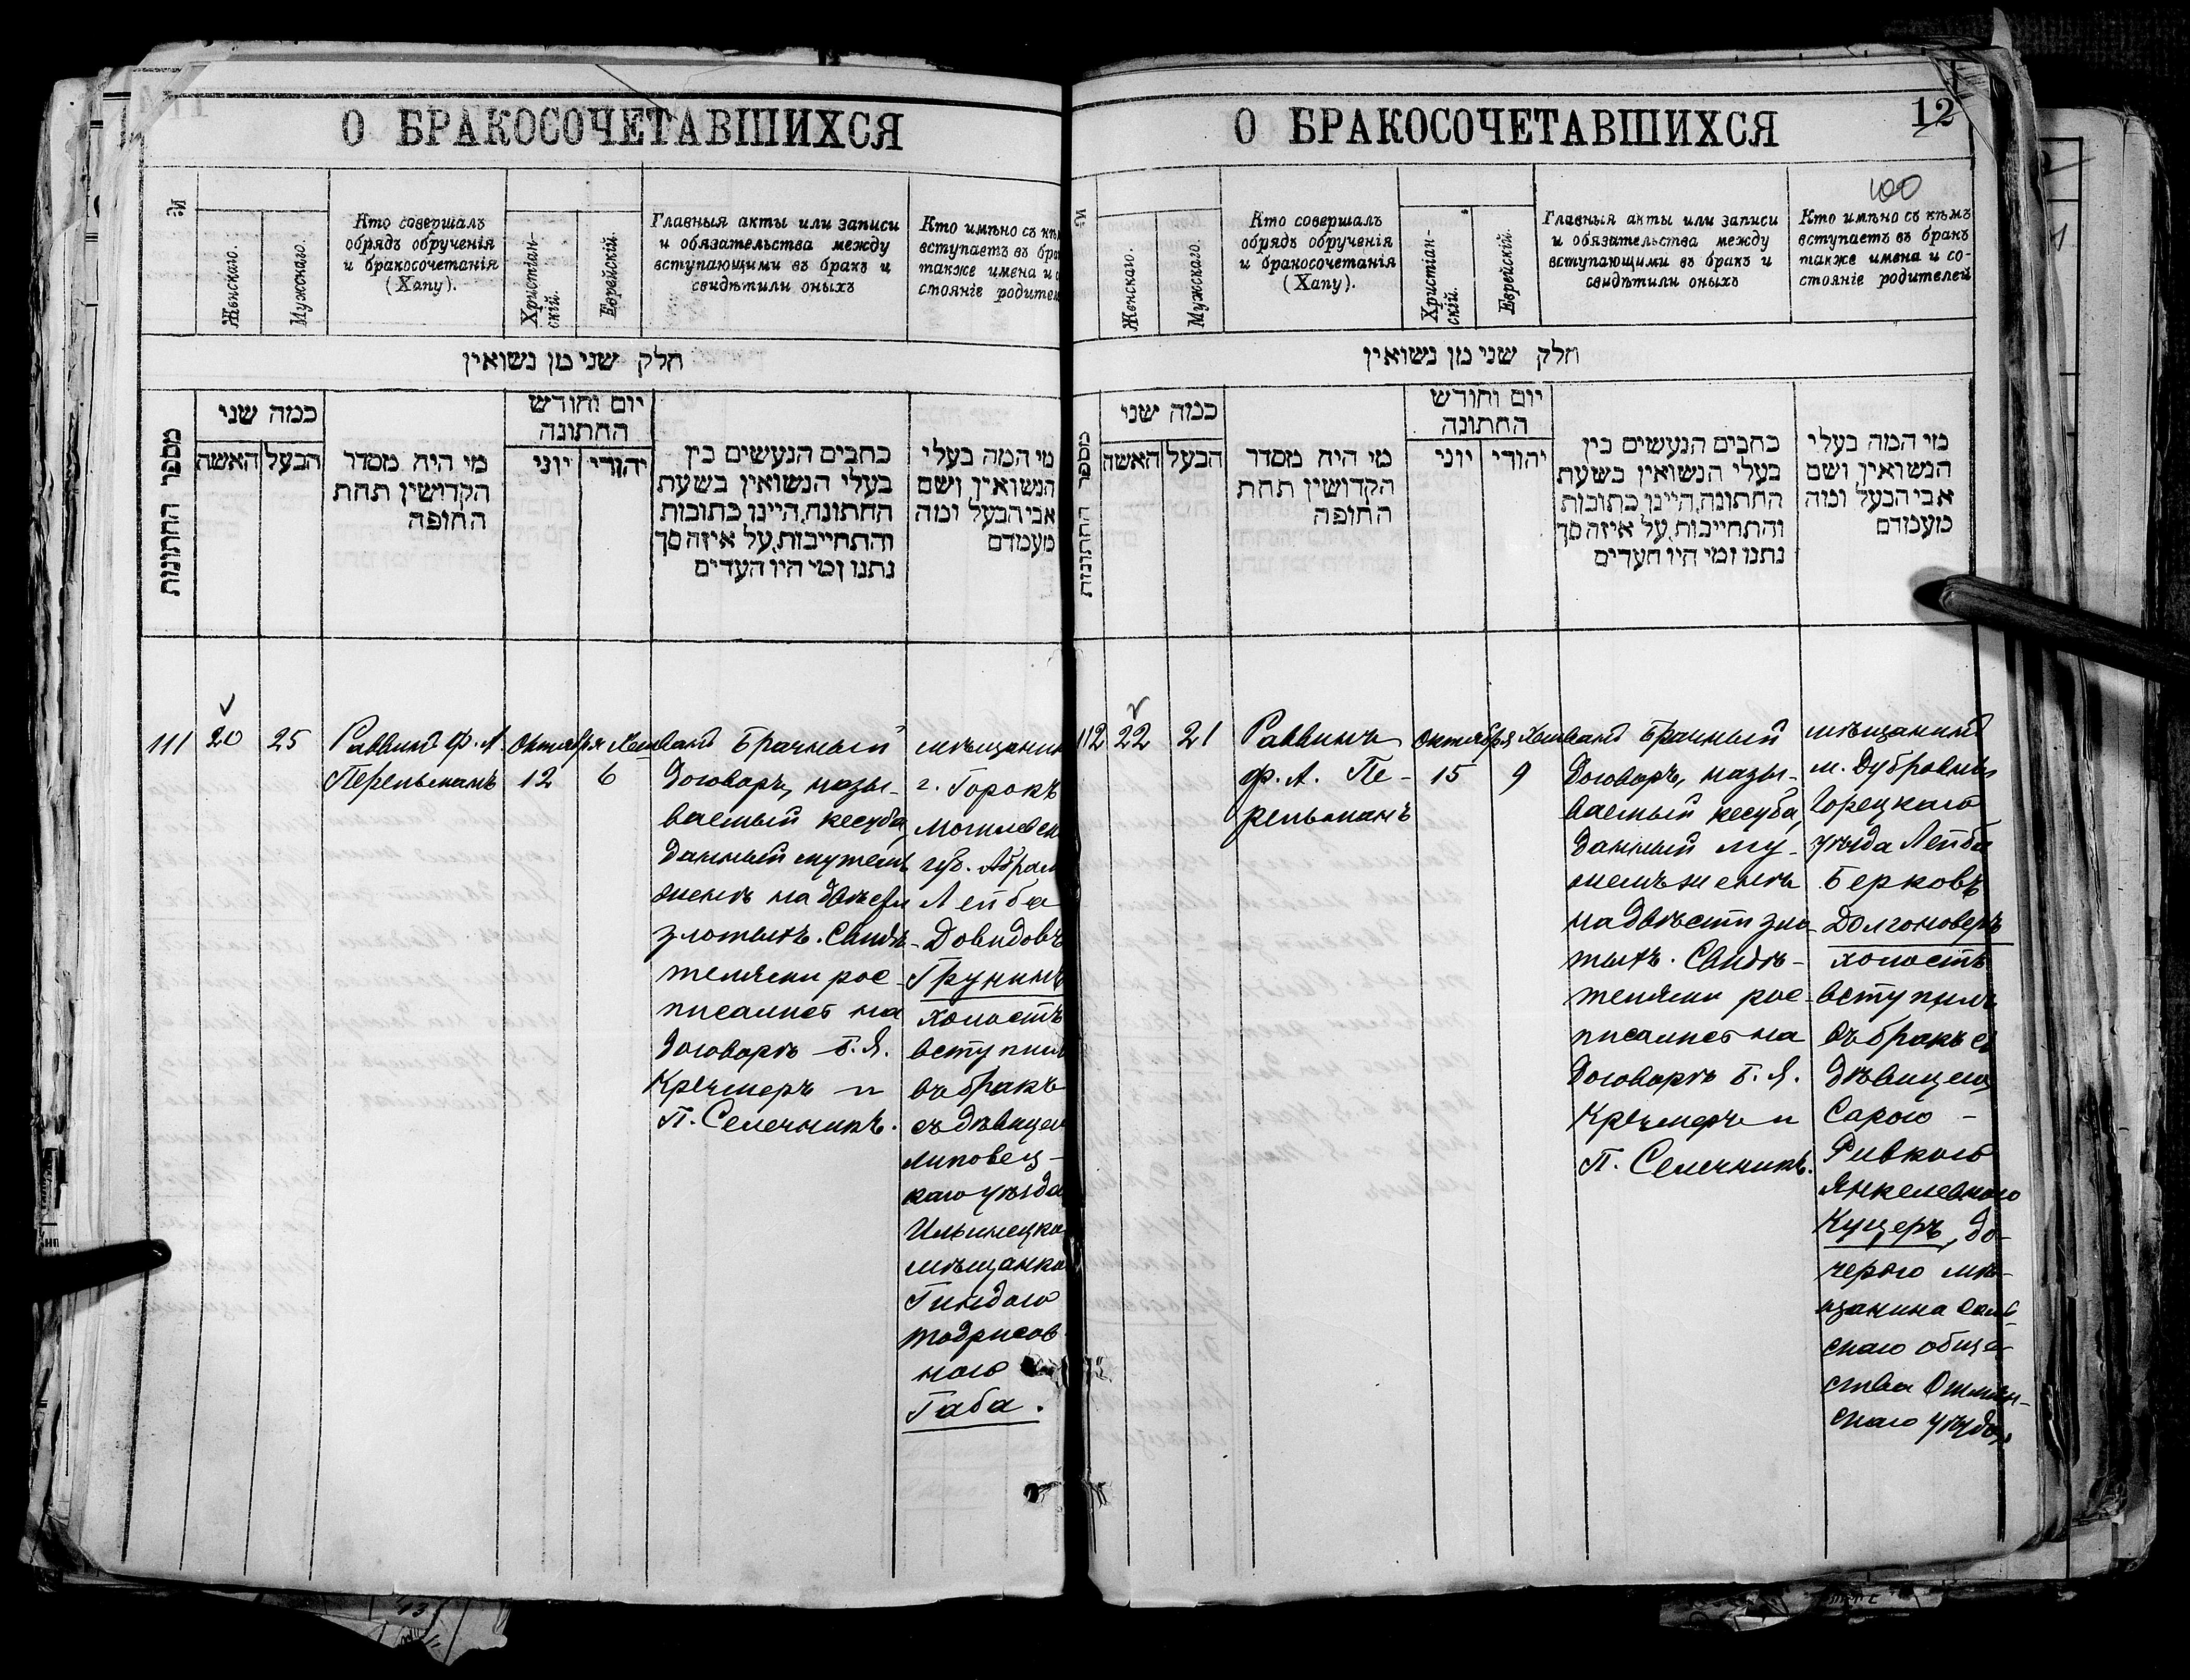 О БРАКОСОЧЕТАВШИХСЯ
№
Женскаго.
Мужскаго.
Кто совершалъ
обрядъ обрученія
и бракосочетанія
(Хапу).
Христіан-
скій.
Еврейскій.
Главныя акты или записи
и обязательства между
вступающими въ бракъ и
свидѣтили оныхъ
Кто имѣно съ
вступаетъ въ
также имена и
стояніе
חלק שני מן נשואין
מספר החתונות
כמה שני
האשה
הבעל
מי היה מסדר
הקדושין תחת
החופה
יום וחודש
החתונה
יוני
יהודי
כתבים הנעשים בין
בעלי הנשואין בשעת
החתונה, היינו כתובות
והתחייבות, על איזה סך
נתנו ומי היו העדים
מי המה בעלי
הנשואין ושם
אבי הבעל ומה
מעמדם
111
20
25
Раввинъ Ф. А.
Перельманъ
Октября
12
Хешванъ
6
Брачный
договоръ, назы-
ваемый кесуба,
данный мужемъ
женѣ на двѣсти
злотыхъ. Свидѣ-
телями рос-
писались на
договорѣ Б. Я.
Кремеръ и
П. Селечникъ.
мѣщанинъ
г. Горокъ
Могилевск
губ. Абрам
Лейба
Довидовъ
Грунинъ
холостъ
вступилъ
въ бракъ
съ дѣвицею
Липовец-
каго уѣзда
Ильинецкою
мѣщанкою
Гиндою
Тодрисов-
ною
Габа.
О БРАКОСОЧЕТАВШИХСЯ
12
100
№
Женскаго.
Мужскаго.
Кто совершалъ
обрядъ обрученія
и бракосочетанія
(Хапу).
Христіан-
скій.
Еврейскій.
Главныя акты или записи
и обязательства между
вступающими въ бракъ и
свидѣтили оныхъ
Кто имѣно съ кѣмъ
вступаетъ въ бракъ
также имена и со-
стояніе родителей
חלק שני מן נשואין
מספר החתונות
כמה שני
האשה
הבעל
מי היה מסדר
הקדושין תחת
החופה
יום וחודש
החתונה
יוני
יהודי
כתבים הנעשים בין
בעלי הנשואין בשעת
החתונה, היינו כתובות
והתחייבות, על איזה סך
נתנו ומי היו העדים
מי המה בעלי
הנשואין ושם
אבי הבעל ומה
מעמדם
112
22
21
Раввинъ
Ф. А. Пе-
рельманъ
Октября
15
Хешванъ
9
Брачный
договоръ, назы-
ваемый кесуба,
данный му-
жемъ женѣ
на двѣсти зло-
тыхъ. Свидѣ-
телями рос-
писались на
договорѣ Б. Я.
Кремеръ и
П. Селечникъ.
мѣщанинъ
м. Дубровны
Горецкаго
уѣзда Лейба
Берковъ
Долгоноверъ
холостъ
вступилъ
въ бракъ съ
дѣвицею
Сарою-
Ривкою
Янкелевною
Куцеръ, до-
черью мѣ-
щанина
скаго обще-
ства Ошмян-
скаго уѣзда.